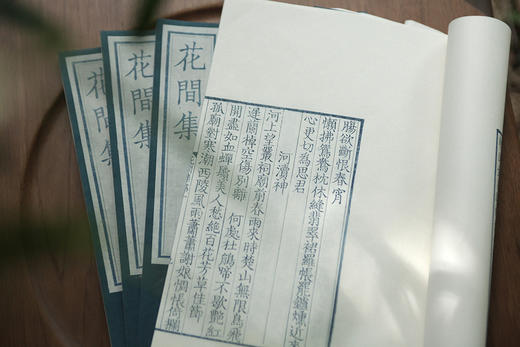 花間集
花間集
花間集
腸欲斷恨春宵
懶拂鴛鴦枕休縫翡翠裙羅帳罷鑪燻近來
心更切為思君
河瀆神
河上望叢祠廟前春雨來時楚山無限鳥飛
遲蘭棹空傷別離 何處杜鵑啼不歇艷紅
開盡如血蟬鬢美人愁絕百花芳草佳節
孤廟對寒潮西陵風雨蕭蕭謝娘惆悵倚蘭